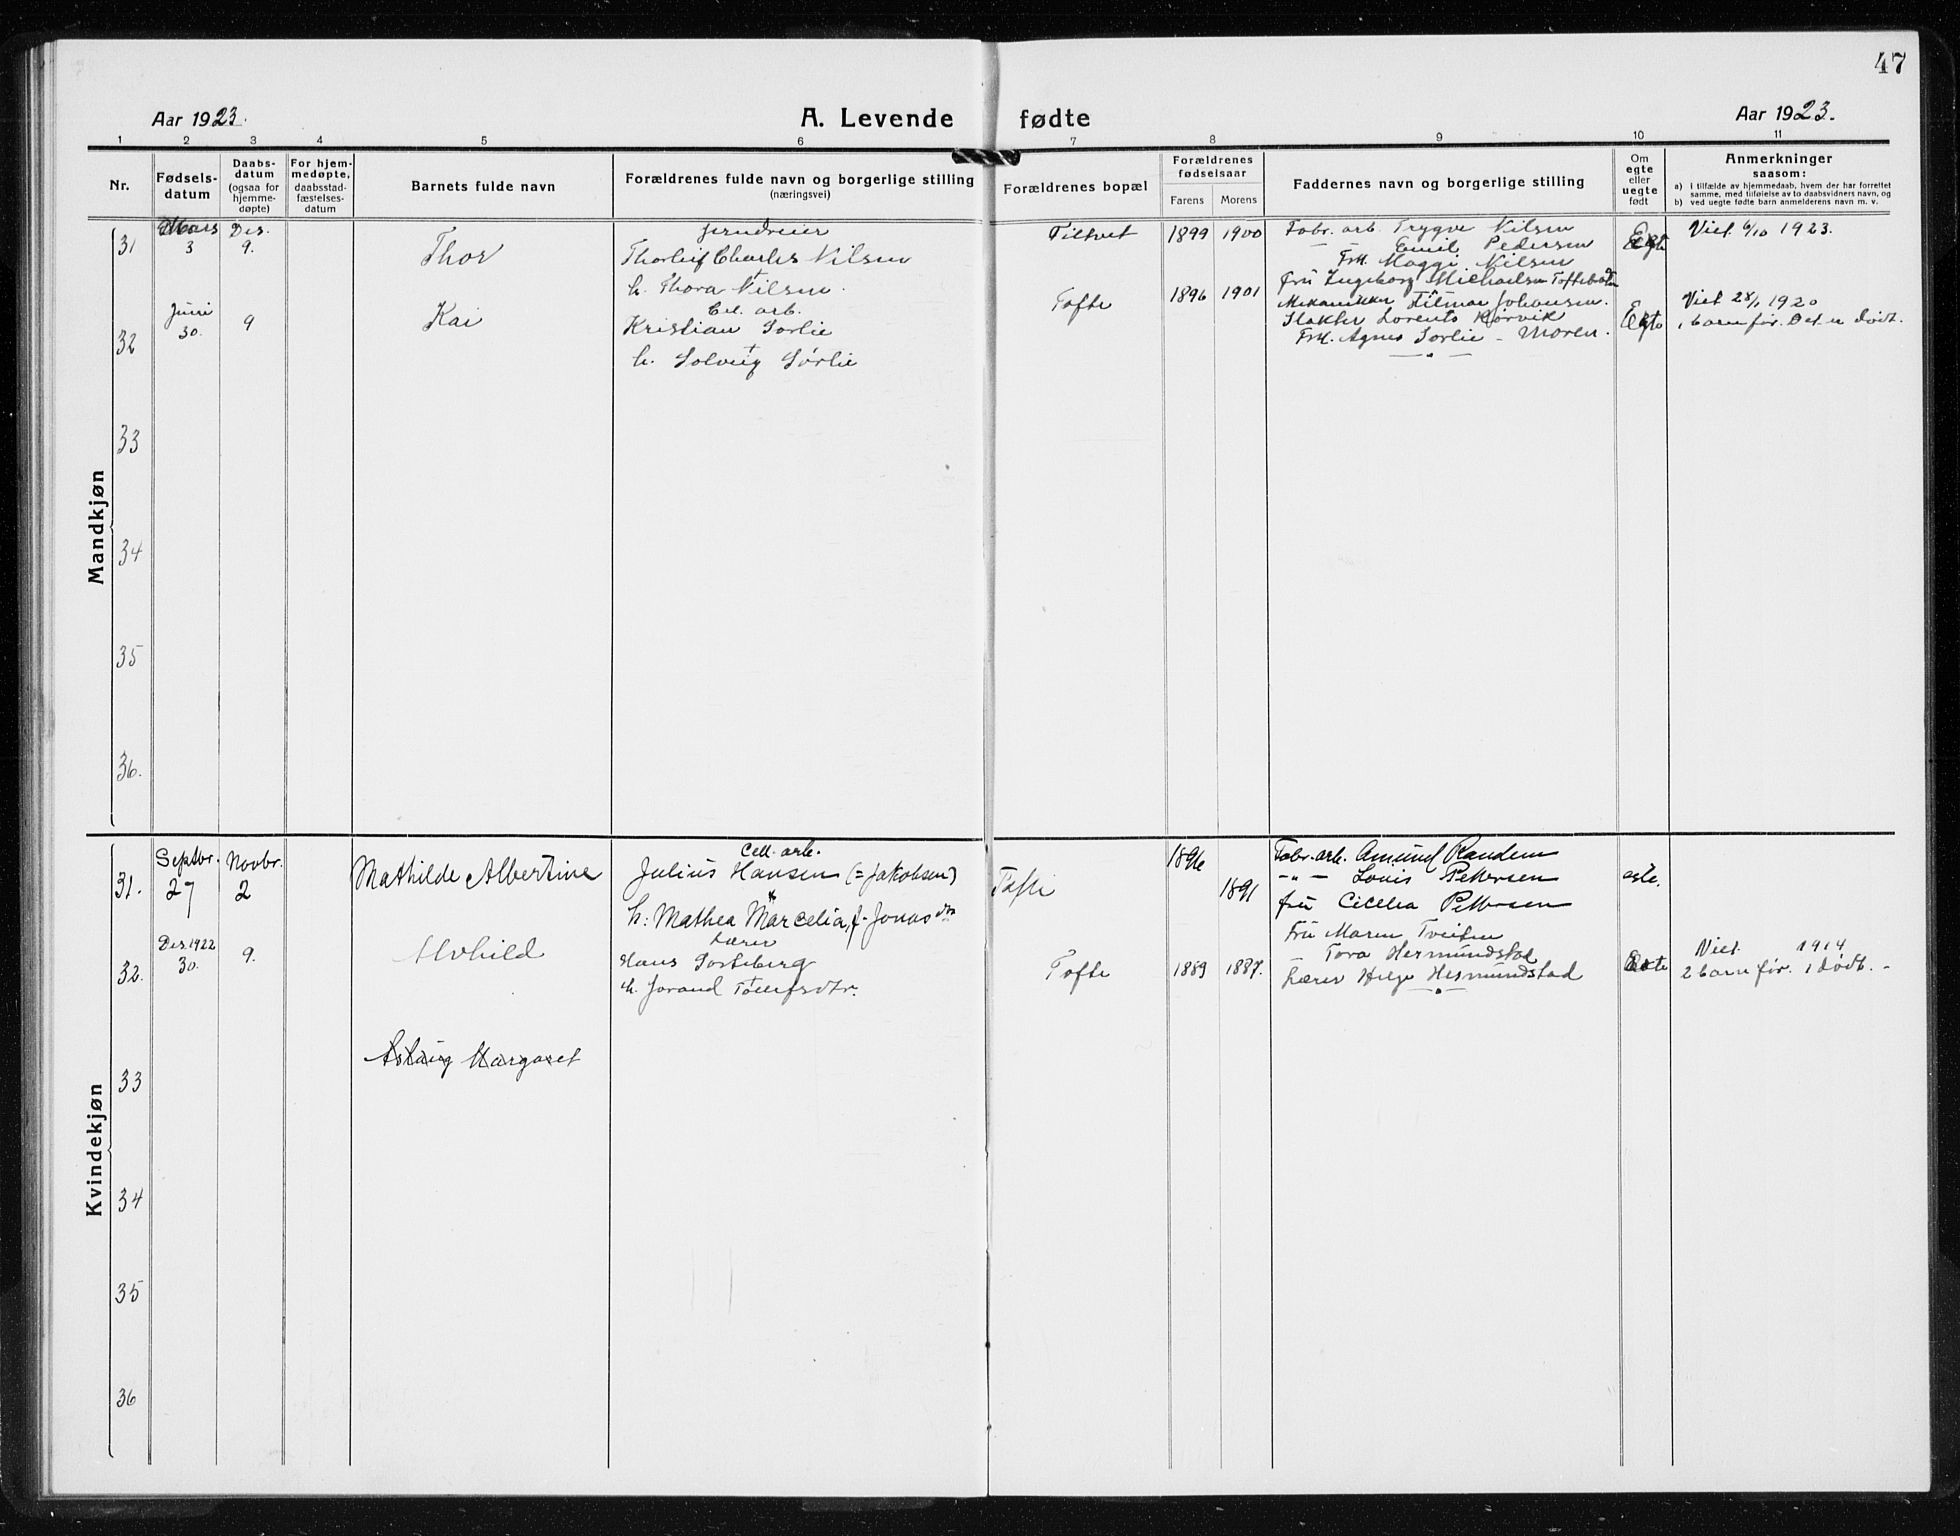 47
Aar 1923.
A. Levende fødte
Aar 1923.
1 2 3 4 5 6 7 8 9 10 11
Nr.
Fødsels-
datum
Daabs-
datum
(ogsaa for
hjemme-
døpte)
For hjem-
medøpte,
daabsstad-
fæstelses-
datum
Barnets fulde navn
Forældrenes fulde navn og borgerlige stilling
(næringsvei)
Forældrenes bopæl
Forældrenes
fødselsaar
Farens Morens
Faddernes navn og borgerlige stilling
Om
egte
eller
uegte
født
Anmerkninger
saasom:
a) i tilfælde av hjemmedaab, hvem der har forrettet
samme, med tilføielse av to daabsvidners navn, og
b) ved uegte fødte barn anmelderens navn m. v.
Mandkjøn
31
Mars
3
Des.
9.
Thor
Thorleif Charles Nilsen
h. Thora Nilsen.
Tiltvet
1899 1900
Fabr. arb. Trygve Nilsen
Emil Pedersen
Frk. Maggi Nilsen
Fru Ingeborg Michaelsen
Egte
Viet 6/10 1923.
32
Juni
30.
9
Kai
Cel. arb.
Kristian Sørlie
h. Solveig Sørlie
Tofte
1896 1901
Mekaniker Hilmar Johansen.
Slakter Lorents Kjørvik
Frk. Agnes Sørlie - Moren.
Egte
Viet 28/1 1920
1 barn før. Det er dødt.
33
34
35
36.
Kvindekjøn
31.
Septbr.
27
Novbr.
2
Mathilde Albertine
Cell. arb.
Julius Hansen (= Jakobsen)
h: Mathea Marcelia, f. Jonasdtr
Tofte
1896
1891
Fabr. arb. Amund Randem
-"- Louis Pettersen
fru Cicelia Pettersen
egte.
32.
Des 1922
30.
9.
Alvhild
Lærer
Hans Sorteberg
h. Jorand Tollefsdtr.
Tofte
1889 1887.
Fru Maren Tveiten
Tora Hermundstad
Lærer Helge Hermundstad
Egte
Viet 1914
2 barn før. 1 dødt. -
33
Aslaug Margaret
34
35
36